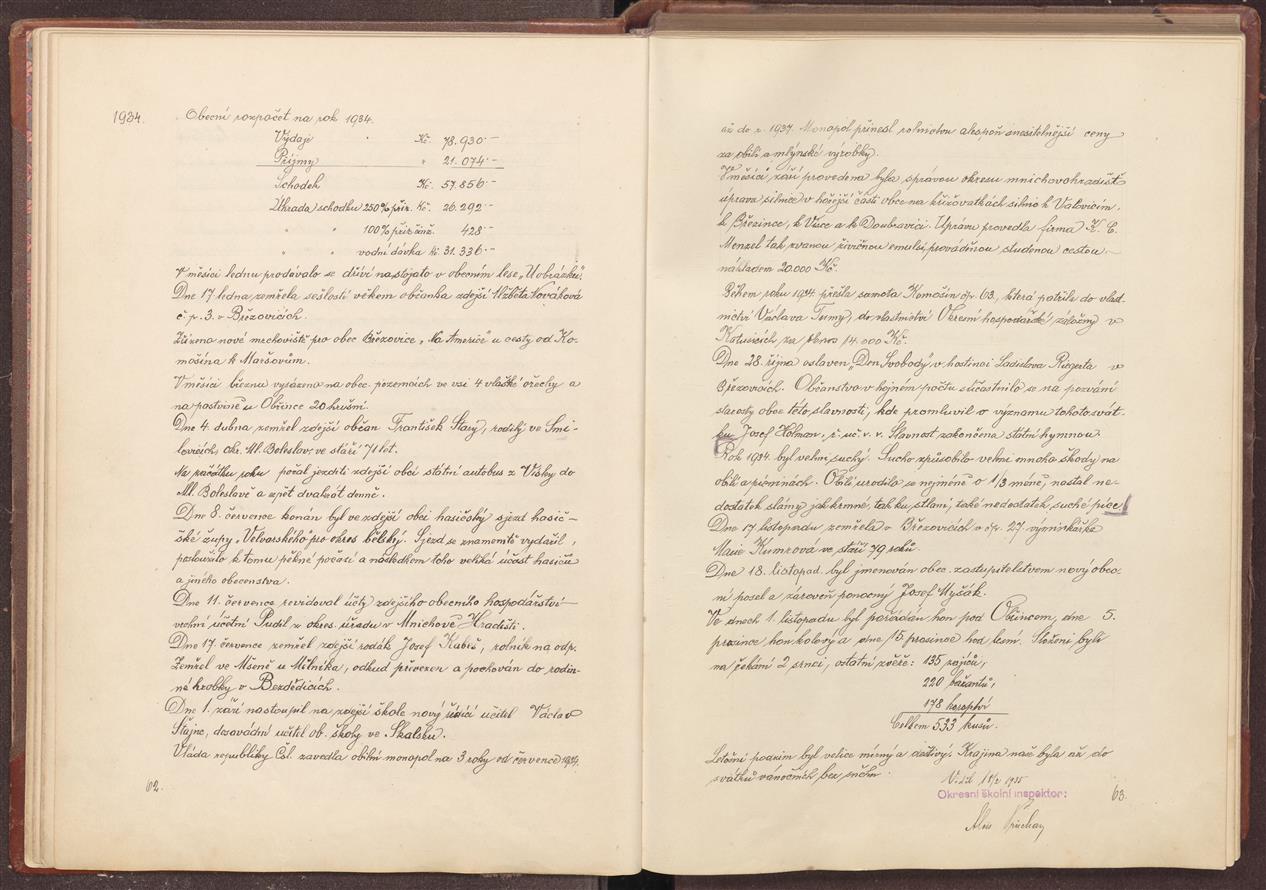 1934.
Obecní rozpočet na rok 1934.
Výdaje Kč. 78.930·-
Příjmy " 21.074·-
Schodek Kč. 57.856·-
Úhrada schodku 250% přir. Kč. 26.292·-
" " 100% přir. činž. 428·-
" " vodní dávka Kč 31.336·-
V měsíci lednu prodávalo se dříví nastojato v obecním lese „U obrázku".
Dne 17. ledna zemřela sešlostí věkem občanka zdejší Alžběta Nováková
č. p. 3. v Březovicích.
Zřízeno nové mrchoviště pro obec Březovice „Na Americe" u cesty od Ko-
mošína k Maršovům.
V měsíci březnu vysázeno na obec. pozemcích ve vsi 4 vlašské ořechy a
na pastvině u Obřince 20 hrušní.
Dne 4. dubna zemřel zdejší občan František Starý, rodilý ve Smi-
lovicích, okr. Ml. Boleslav, ve stáří 71 let.
Na začátku roku počal jezditi zdejší obcí státní autobus z Vísky do
Ml. Boleslavě a zpět dvakrát denně.
Dne 8. července konán byl ve zdejší obci hasičský sjezd hasič-
ské župy Velvarského pro okres bělský. Sjezd se znamenitě vydařil,
posloužilo k tomu pěkné počasí a následkem toho veliká účast hasičů
a jiného obecenstva.
Dne 11. července revidoval účty zdejšího obecního hospodářství
vrchní účetní Pudil z okres. úřadu v Mnichově Hradišti.
Dne 17. července zemřel zdejší rodák Josef Kubeš, rolník na odp.
Zemřel ve Mšeně u Mělníka, odkud převezen a pochován do rodin-
né hrobky v Bezdědicích.
Dne 1. září nastoupil na zdejší škole nový řídící učitel Václav
Štajnc, dosavádní učitel ob. školy ve Skalsku.
Vláda republiky Čsl. zavedla obilní monopol na 3 roky od července 1934
62.
až do r. 1937. Monopol přinesl rolnictvu alespoň snesitelnější ceny
za obilí a mlýnské výrobky.
V měsíci září provedena byla správou okresu mnichovohradišt.
úprava silnice v hořejší části obce na křižovatkách silnic k Valovicím.
k Březince, k Vísce a k Doubravici. Úpravu provedla firma K. C.
Menzel tak zvanou živičnou emulsí, prováděnou studenou cestou
nákladem 20.000 Kč.
Během roku 1934 přešla samota Komošín čp. 63, která patřila do vlast-
nictví Václava Tumy, do vlastnictví Okresní hospodářské záložny v
za obnos 14.000 Kč.
Dne 28. října oslaven „Den Svobody" v hostinci Ladislava Riegerta v
Březovicích. Občanstvo v hojném počtu súčastnilo se na pozvání
starosty obce této slavnosti, kde promluvil o významu tohoto svát-
ku Josef Holman, ř. uč. v. v. Slavnost zakončena státní hymnou.
Rok 1934. byl velmi suchý. Sucho způsobilo velmi mnoho škody na
obilí a pícninách. Obilí urodilo se nejméně o 1/3 méně, nastal ne-
dostatek slámy jak krmné, tak ku stlaní, také nedostatek suché píce.
Dne 17. listopadu zemřela v Březovicích v čp. 27. výminkářka
Marie Kumrová ve stáří 79 roků.
Dne 18. listopad. byl jmenován obec. zastupitelstvem nový obec-
ní posel a zároveň ponocný Josef Myšák.
Ve dnech 1. listopadu byl pořádán hon pod Obřincem, dne 5.
prosince hon kolový a dne 15 prosince hod lem. Složeni byli
na čekání 2 srnci, ostatní zvěře: 135 zajíců,
220 bažantů,
178 koroptví
Celkem 533 kusů.
Letošní podzim byl velice mírný a deštivý. Krajina naše byla až do
svátků vánočních bez sněhu.
Viděl 18/2 1935
Okresní školní inspektor:
63.